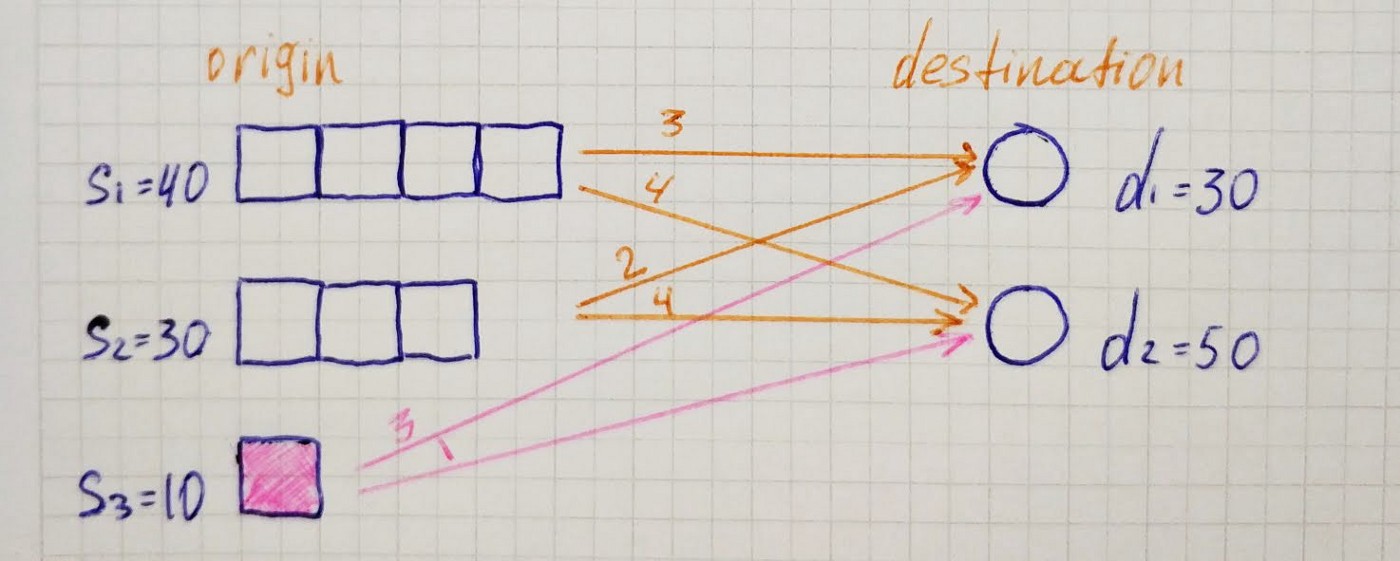 origin destination
3
s₁=40 d₁=30
4
2
4
s₂=30 d₂=50
3
1
s₃=10